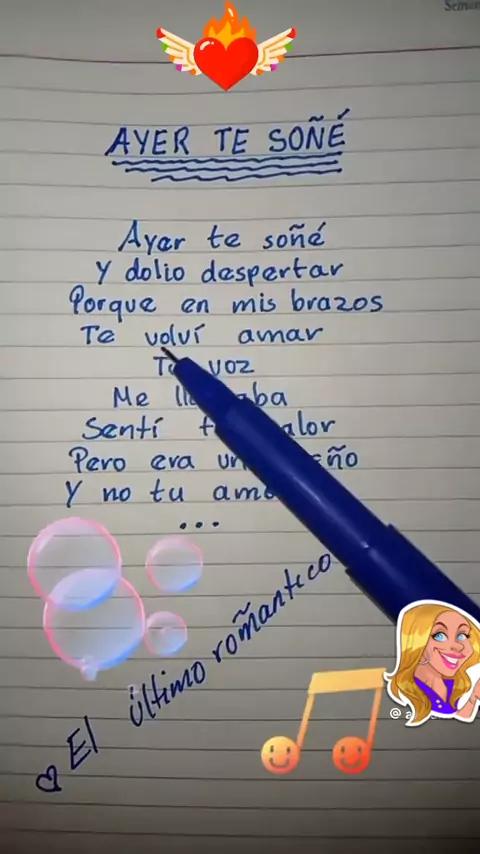 AYER TE SOÑÉ
Ayer te soñé
Y dolio despertar
Porque en mis brazos
Te volví amar
Tu voz
Me
Sentí
Pero era un
Y no tu
...
El último romantico
@